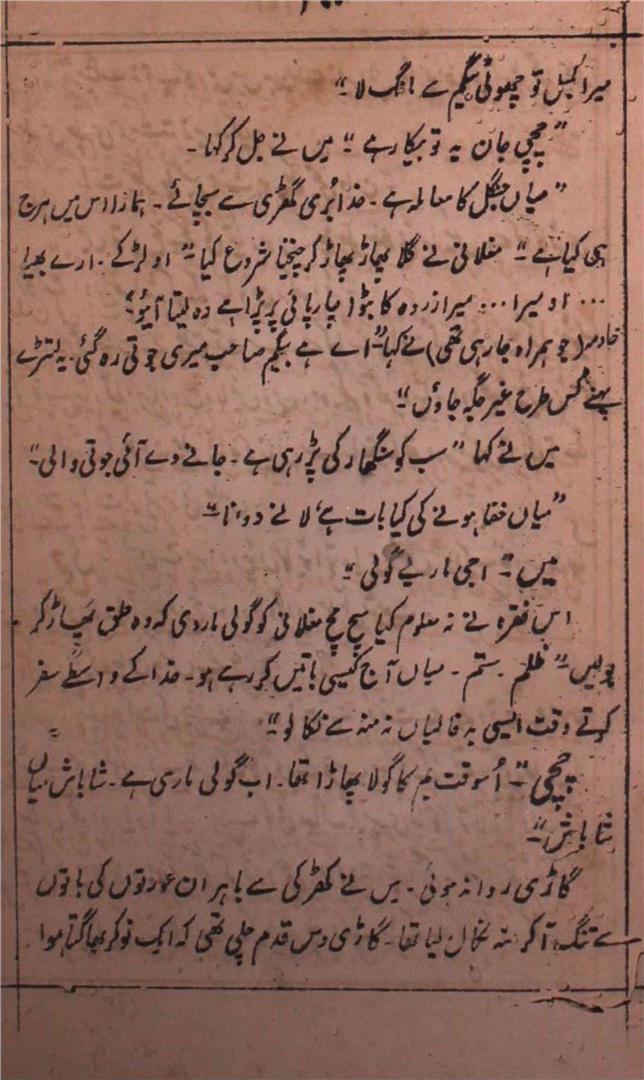 میرا کمبل تو چھوٹی بیگم سے مانگ لا۔"
"چچی جان یہ تو بیکار ہے" میں نے جل کر کہا۔
"میاں جنگل کا معاملہ ہے۔ خدا بُری گھڑی سے بچائے۔ ہمارا اس میں ہرج
ہی کیا ہے" مغلانی نے گلا پھاڑ پھاڑ کر چیخنا شروع کیا "او لڑکے۔ ارے بھیا
... او میرا... میرا زردہ کا بٹوا چارپائی پر پڑا ہے وہ لیتا آئیو"
خادمہ (جو ہمراہ جا رہی تھی) نے کہا "اے ہے بیگم صاحب میری جوتی رہ گئی۔ یہ لتڑے
پہنے کس طرح غیر جگہ جاؤں"
میں نے کہا "سب کو سنگھار کی پڑ رہی ہے۔ جانے دے آئی جوتی والی۔"
"میاں خفا ہونے کی کیا بات ہے، لانے دو نا"
میں۔ "اجی ماریے گولی"
اس فقرہ نے نہ معلوم کیا سچ مچ مغلانی کو گولی مار دی کہ وہ حلق پھاڑ کر
بولیں "ظلم۔ ستم۔ میاں آج کیسی باتیں کر رہے ہو۔ خدا کے واسطے سفر
کرتے وقت ایسی بدفالیاں نہ منہ سے نکالو"
چچی۔ "اُسوقت بم کا گولا پھاڑا تھا۔ اب گولی ماری ہے۔ شاباش میاں
شاباش"۔
گاڑی روانہ ہوئی۔ میں نے کھڑکی سے باہر ان عورتوں کی باتوں
سے تنگ آکر منہ نکال لیا تھا۔ گاڑی دس قدم چلی تھی کہ ایک نوکر بھاگتا ہوا